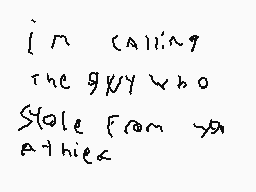 im cAlling
The gyy who
Stole From you
A thief